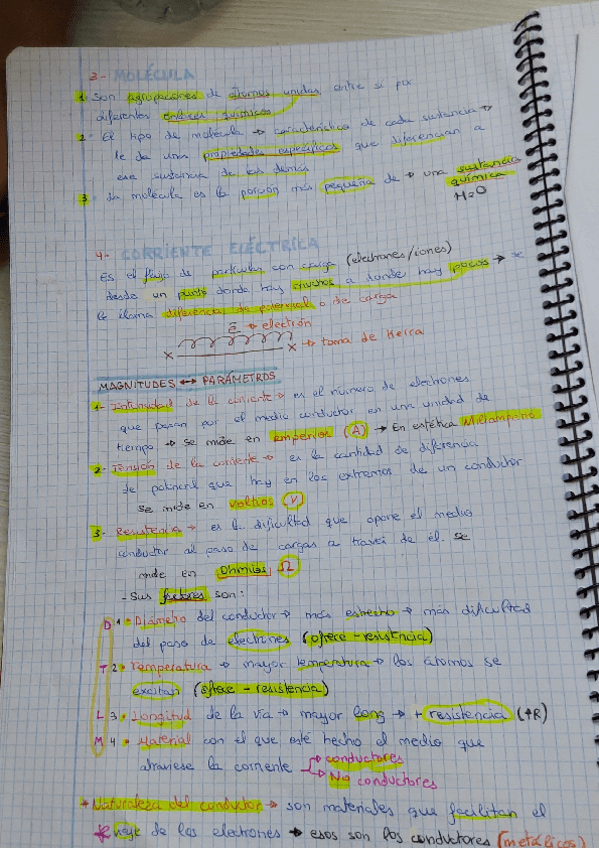 3- MOLÉCULA
1. Son agrupaciones de átomos unidas entre si por
diferentes enlaces químicos
2. El tipo de molécula → característico de cada sustancia →
le da unas propiedades específicas que diferencian a
esa sustancia de las demás
3. La molécula es la porción más pequeña de → una sustancia
química
H2O
4- CORRIENTE ELÉCTRICA
Es el flujo de partículas con carga (electrones/iones)
desde un punto donde hay muchos a donde hay pocos → se
le llama diferencia de potencial o de carga
E → electrón
x x → toma de tierra
MAGNITUDES ↔ PARÁMETROS
1- Intensidad de la corriente → es el número de electrones
que pasan por el medio conductor en una unidad de
tiempo → se mide en amperios (A) → En estética Miliamperio
2- Tensión de la corriente → es la cantidad de diferencia
de potencial que hay en los extremos de un conductor
se mide en voltios (V)
3- Resistencia → es la dificultad que opone el medio
conductor al paso de cargas a través de él. se
mide en Ohmios Ω
- Sus factores son:
D 1. Diámetro del conductor → más estrecho → más dificultad
del paso de electrones (ofrece - resistencia)
T 2. Temperatura → mayor temperatura → los átomos se
excitan (ofrece - resistencia)
L 3. Longitud de la vía → mayor long → + resistencia (↑R)
M 4. Material con el que esté hecho el medio que
atraviese la corriente → conductores
→ No conductores
* Naturaleza del conductor → son materiales que facilitan el
de los electrones → esos son los conductores (metálicos)